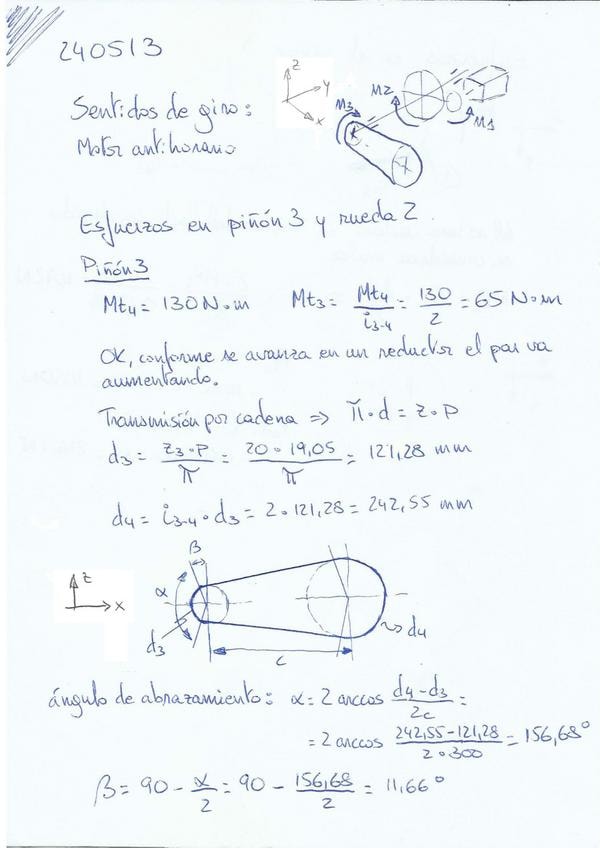 240513
Z
Y
X
M3
M2
M1
Sentidos de giro:
Motor antihorario
Esfuerzos en piñón 3 y rueda 2.
Piñón 3
Mt4 = 130 N·m    Mt3 = Mt4/i3-4 = 130/2 = 65 N·m
OK, conforme se avanza en un reductor el par va
aumentando.
Transmisión por cadena => π·d = z·p
d3 = z3·p/π = 20·19,05/π = 121,28 mm
d4 = i3-4·d3 = 2·121,28 = 242,55 mm
β
z
x
α
d3
d4
c
ángulo de abrazamiento: α = 2 arccos d4-d3/2c =
= 2 arccos 242,55-121,28/2·300 = 156,68°
β = 90 - α/2 = 90 - 156,68/2 = 11,66°